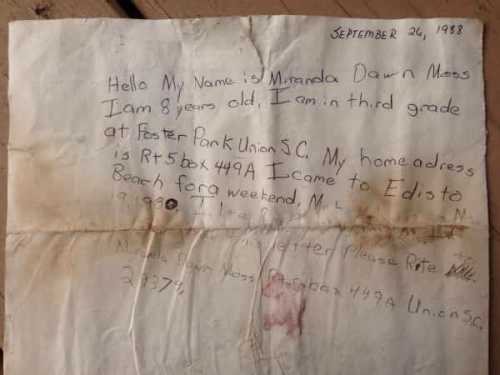 SEPTEMBER 26, 1988
Hello My Name is Miranda Dawn Moss
I am 8 years old, I am in third grade
at Foster Park Union S.C. My home adress
is Rt 5 box 449A I came to Edisto
Beach for a weekend, M
I
letter Please Rite
Dawn Moss box 449A Union S.C.
29379,